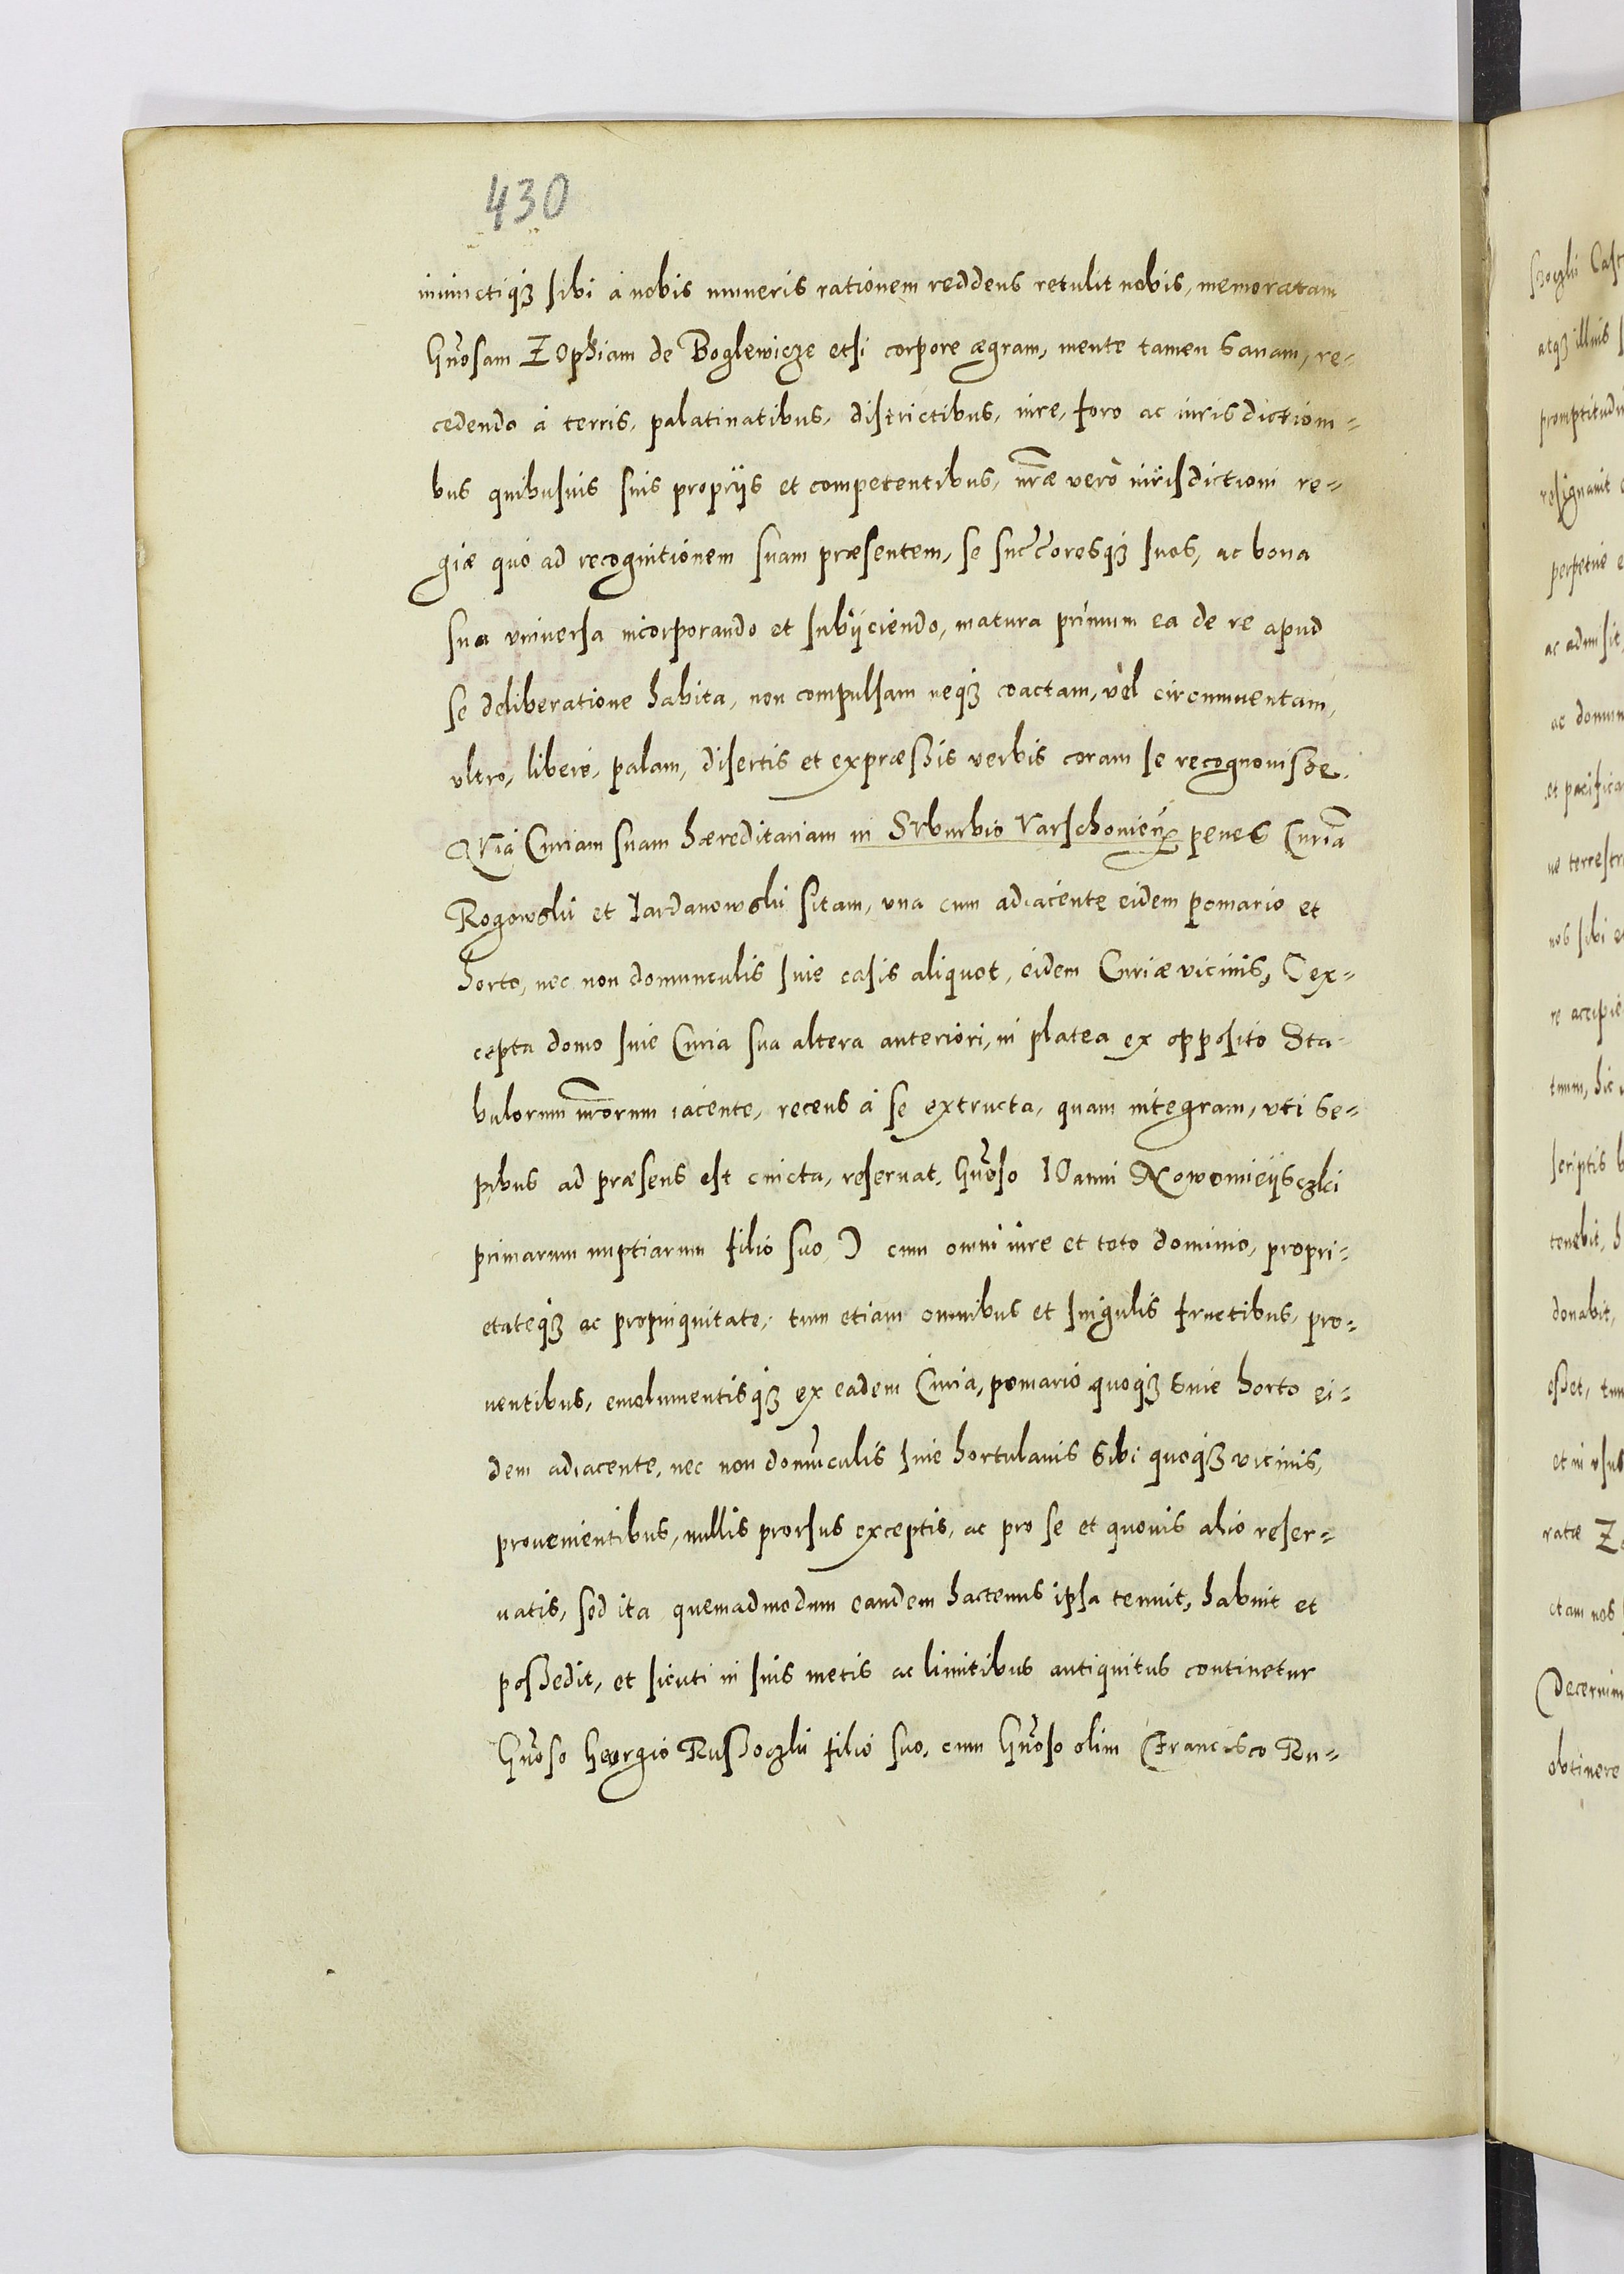 430
iniunctiqꝫ sibi à nobis muneris rationem reddens retulit nobis, memoratam
Gn̄osam ZOphiam de Boglewicze etsi corpore ægram, mente tamen sanam, re-
cedendo à terris, palatinatibus, districtibus, iure, foro ac iurisdictioni-
bus quibusuis suis proprijs et competentibus, nr̄æ verò iurisdictioni re-
giæ quò ad recognitionem suam præsentem, se succ̄oresqꝫ suos, ac bona
sua vniuersa incorporando et subijciendo, matura primum ea de re apud
se deliberatione habita, non compulsam neqꝫ coactam, vèl circumuentam,
vltro, liberè, palam, disertis et expræssis verbis coram se recognouisse.
QVia Curiam suam hæreditariam in SVburbio Varschouieñ penes Curiā
Rogowskĳ et Iardanowskĳ sitam, vna cum adiacente eidem pomario et
horto, nec non domunculis siue casis aliquot, eidem Curiæ vicinis, (ex-
cepta domo siue Curia sua altera anteriori, in platea ex opposito Sta-
bulorum nr̄orum iacente, recens à se extructa, quam integram, vti se-
pibus ad præsens est cincta, reseruat, Gn̄oso IOanni Nowomieijsczki
primarum nuptiarum filio suo) cum omni iure et toto dominio, propri-
etateqꝫ ac propinquitate, tum etiam omnibus et singulis fructibus, pro-
uentibus, emolumentisqꝫ ex eadem Curia, pomario quoqꝫ siue horto ei-
dem adiacente, nec non domūculis siue hortulanis sibi quoqꝫ vicinis,
prouenientibus, nullis prorsus exceptis, ac pro se et quouis alio reser-
uatis, sed ita quemadmodum eandem hactenus ipsa tenuit, habuit et
possedit, et sicuti in suis metis ac limitibus antiquitus continetur
Gn̄oso Georgio Russoczkĳ filio suo, cum Gn̄oso olim Francisco Ru-